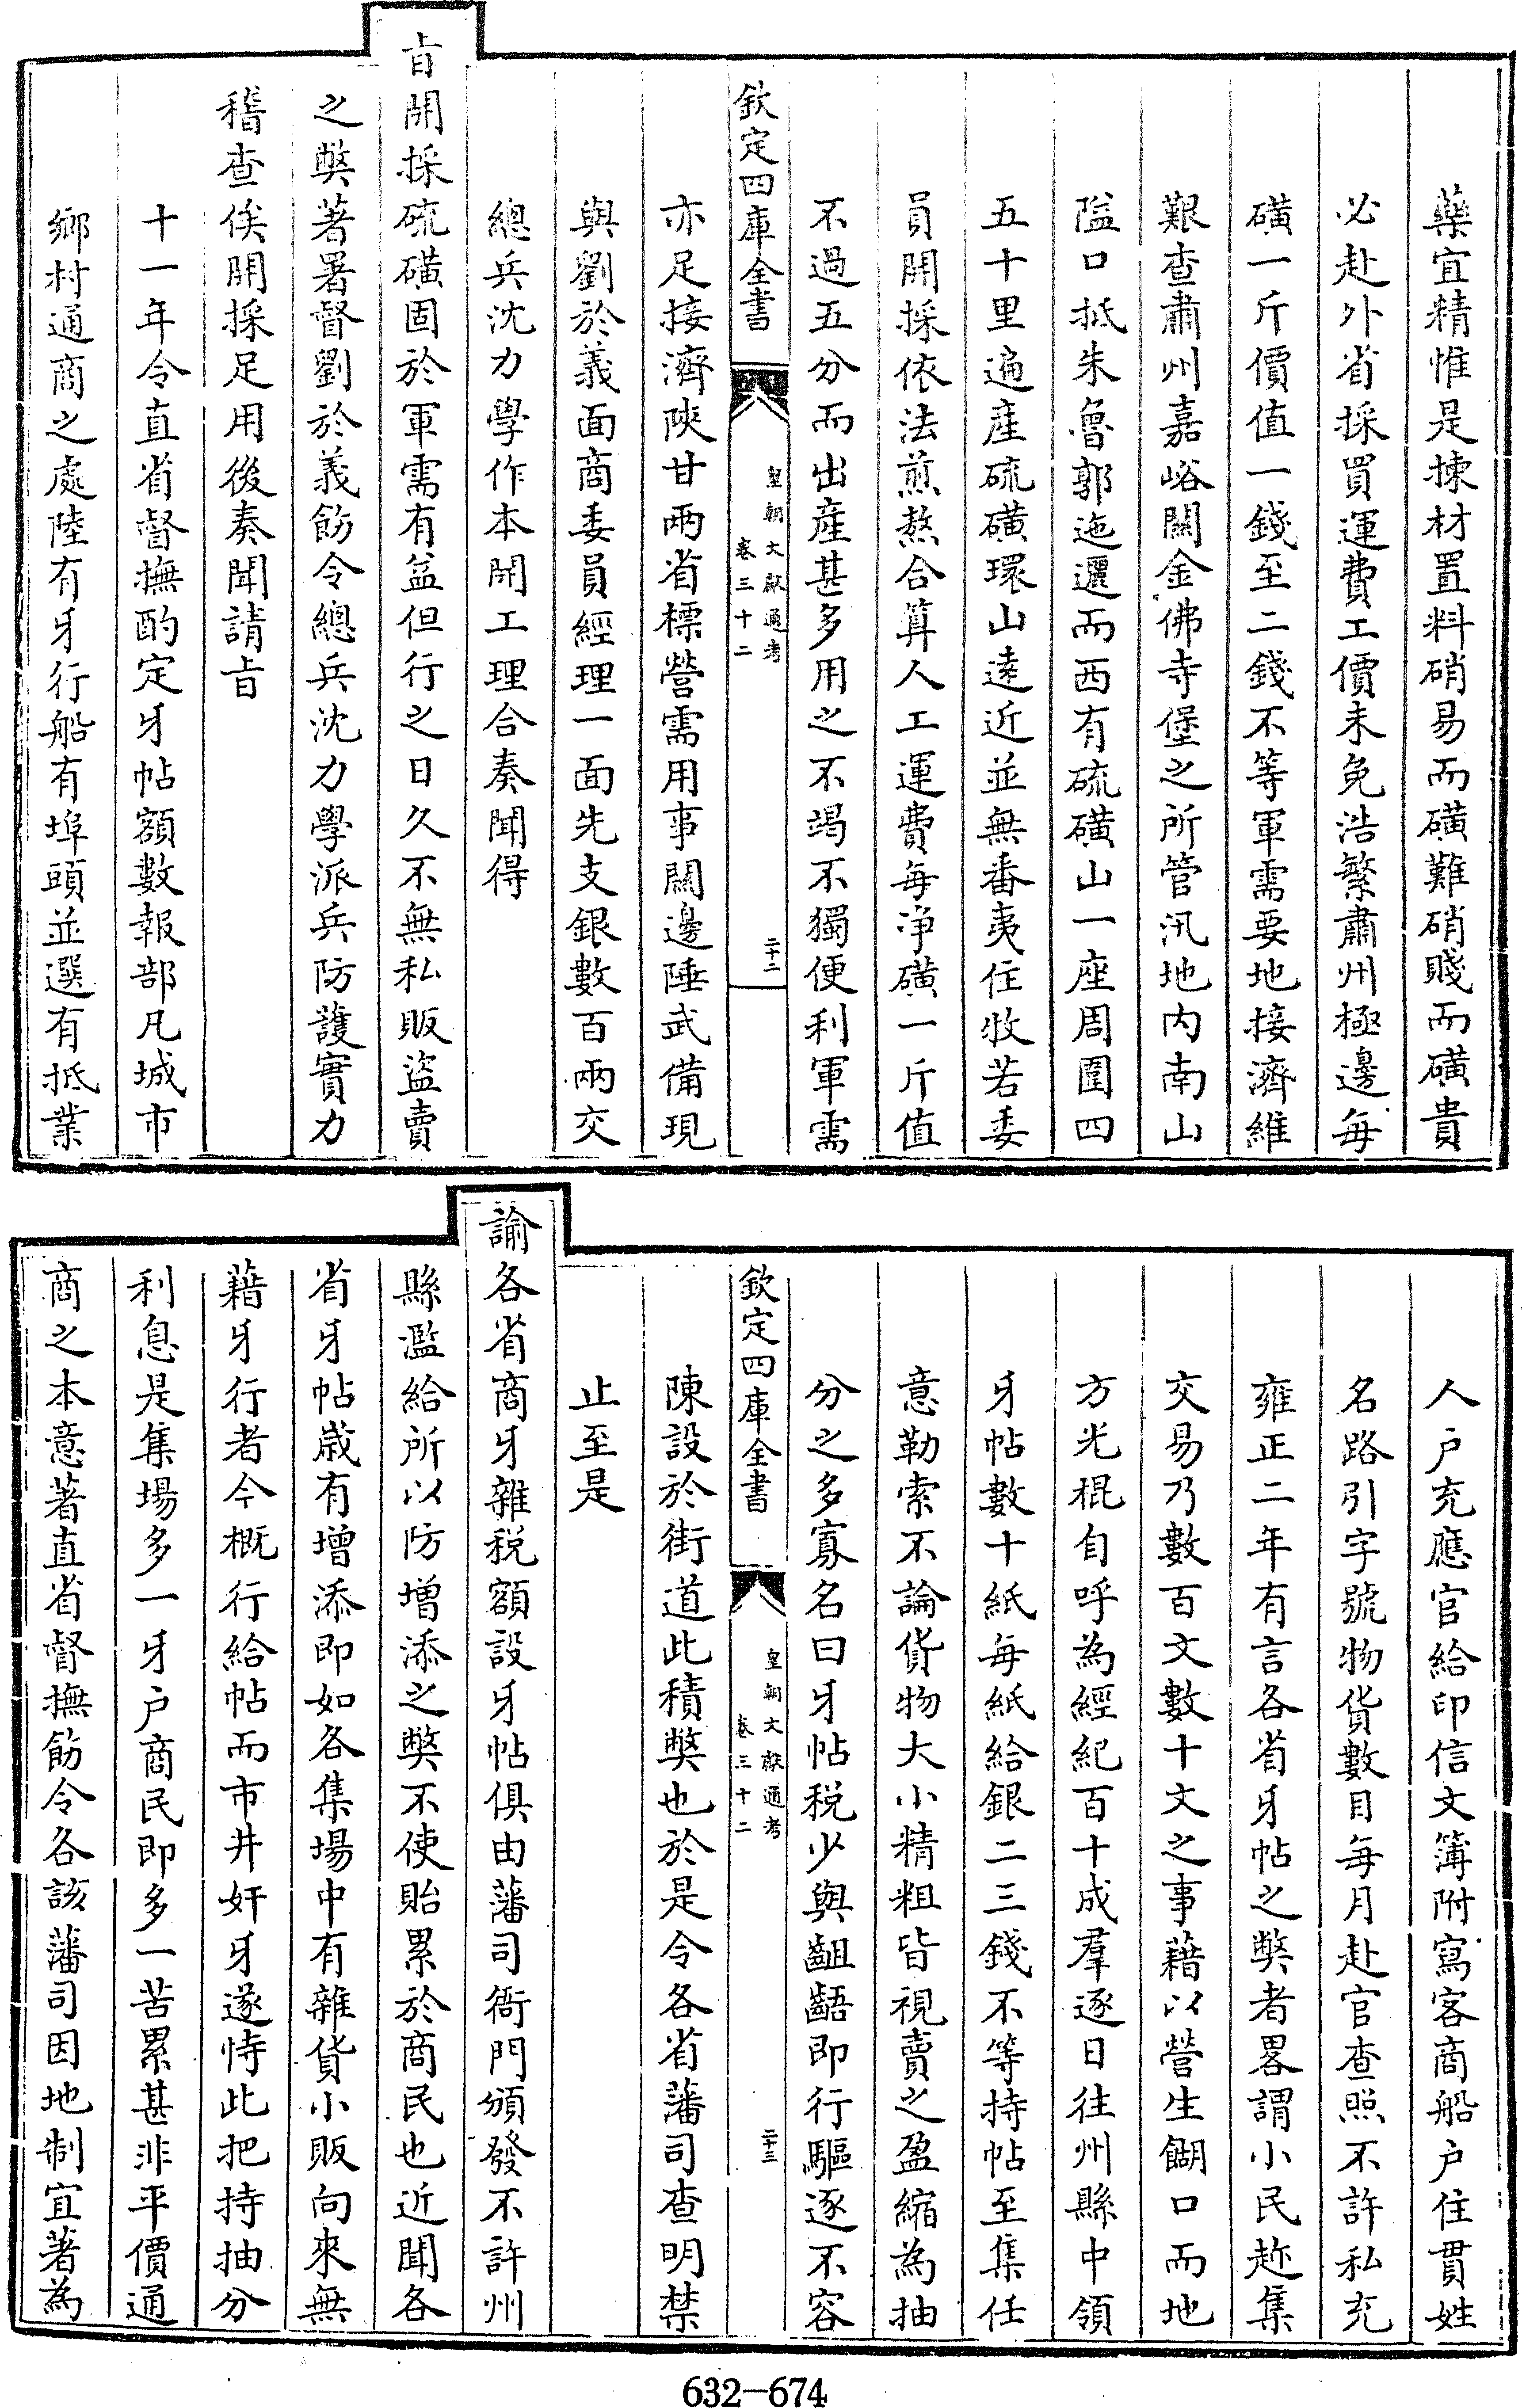 藥宜精惟是揀材置料硝易而磺難硝賤而磺貴
必赴外省採買運費工價未免浩繁肅州極邊每
磺一斤價值一錢至二錢不等軍需要地接濟維
艱查肅州嘉峪關金佛寺堡之所管汛地内南山
隘口抵朱魯郭迤邐而西有硫磺山一座周圍四
五十里遍産硫磺環山逺近並無番夷住牧若委
員開採依法煎熬合算人工運費每净磺一斤值
不過五分而出産甚多用之不竭不獨便利軍需
欽定四庫全書
皇朝文獻通考
卷三十二
二十二
亦足接濟陝甘兩省標營需用事關邊陲武備現
與劉於義面商委員經理一面先支銀數百兩交
總兵沈力學作本開工理合奏聞得
㫖開採硫磺固於軍需有益但行之日久不無私販盜賣
之弊著署督劉於義飭令總兵沈力學派兵防護實力
稽查俟開採足用後奏聞請㫖
十一年令直省督撫酌定牙帖額數報部凡城市
鄉村通商之處陸有牙行船有埠頭並選有抵業
人户充應官給印信文簿附寫客商船户住貫姓
名路引字號物貨數目每月赴官查照不許私充
雍正二年有言各省牙帖之弊者畧謂小民趂集
交易乃數百文數十文之事藉以營生餬口而地
方光棍自呼為經紀百十成羣逐日往州縣中領
牙帖數十紙每紙給銀二三錢不等持帖至集任
意勒索不論貨物大小精粗皆視賣之盈縮為抽
分之多寡名曰牙帖税少與齟齬即行驅逐不容
欽定四庫全書
皇朝文獻通考
卷三十二
二十三
陳設於街道此積弊也於是令各省藩司查明禁
止至是
諭各省商牙雜税額設牙帖俱由藩司衙門頒發不許州
縣濫給所以防增添之弊不使貽累於商民也近聞各
省牙帖歳有增添即如各集場中有雜貨小販向來無
藉牙行者今概行給帖而市井奸牙遂恃此把持抽分
利息是集場多一牙户商民即多一苦累甚非平價通
商之本意著直省督撫飭令各該藩司因地制宜著為
632-674